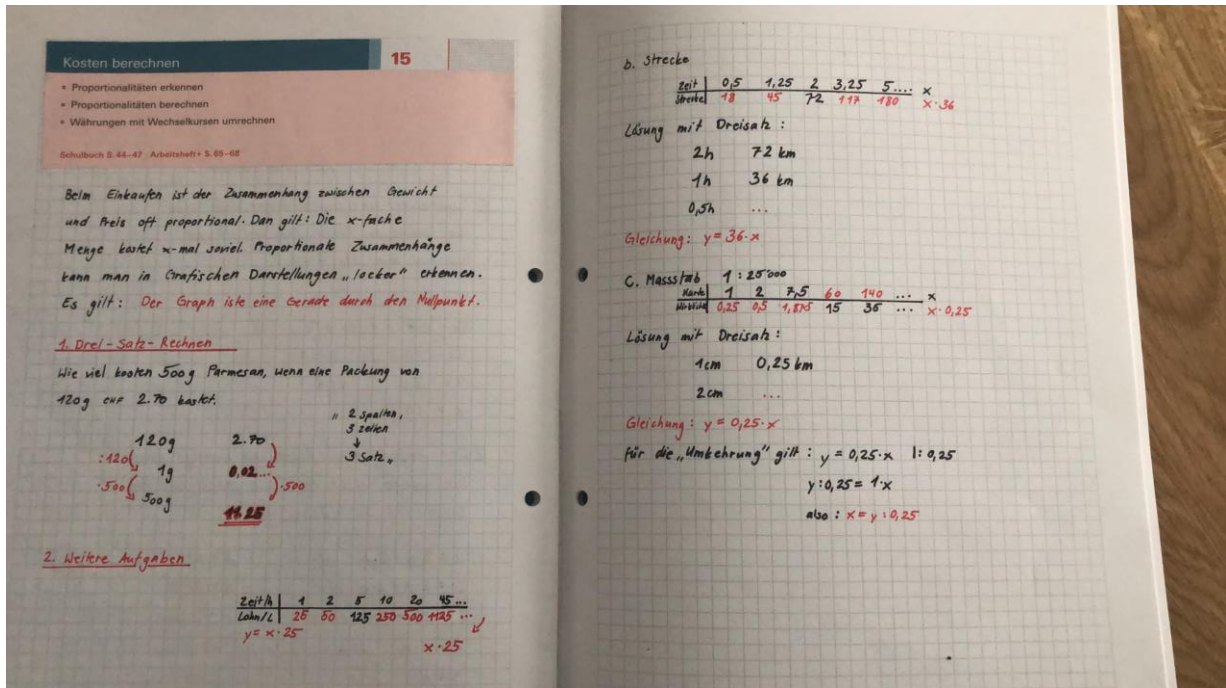 Kosten berechnen 15
• Proportionalitäten erkennen
• Proportionalitäten berechnen
• Währungen mit Wechselkursen umrechnen
Schulbuch S. 44–47 Arbeitsheft+ S. 65–68
Beim Einkaufen ist der Zusammenhang zwischen Gewicht
und Preis oft proportional. Dan gilt: Die x-fache
Menge kostet x-mal soviel. Proportionale Zusammenhänge
kann man in Grafischen Darstellungen „locker" erkennen.
Es gilt: Der Graph iste eine Gerade durch den Nullpunkt.
1. Drei-Satz-Rechnen
Wie viel kosten 500g Parmesan, wenn eine Packung von
120g CHF 2.70 kostet.
„ 2 spalten,
3 zeilen
↓
3 Satz „
120g 2.70
:120
1g 0,02...
·500 ·500
500g 11.25
2. Weitere Aufgaben
Zeit/h 1 2 5 10 20 45...
Lohn/L 25 50 125 250 500 1125 ...
y= x·25
x·25
b. Strecke
Zeit 0,5 1,25 2 3,25 5.... x
Strecke 18 45 72 117 180 x·36
Lösung mit Dreisatz :
2h 72 km
1h 36 km
0,5h ...
Gleichung: y= 36·x
C. Massstab 1 : 25'000
Karte 1 2 7,5 60 140 ... x
0,25 0,5 1,875 15 35 ... x·0,25
Lösung mit Dreisatz :
1cm 0,25 km
2cm ...
Gleichung: y= 0,25·x
für die „Umkehrung" gilt : y= 0,25·x |: 0,25
y:0,25= 1·x
also : x= y:0,25